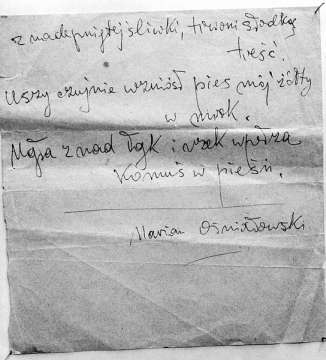 z nadepniętej śliwki, trwoni słodką
treść.
Uszy czujnie wzniósł pies mój żółty
w mrok.
Mgła z nad łąk i rzek wpełza
komuś w pieśń.
Marian Ośniałowski